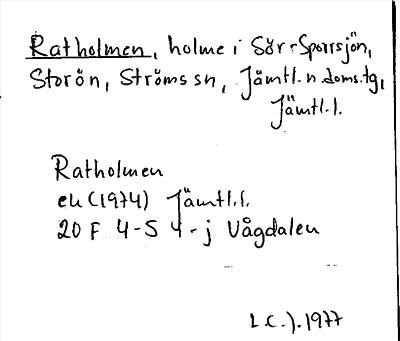 Ratholmen, holme i Sör-Sporrsjön,
Storön, Ströms sn, Jämtl. n. doms.tg,
Jämtl.l.
Ratholmen
ek (1974) Jämtl.l.
20 F 4-5 4-j Vågdalen
L.C.J. 1977